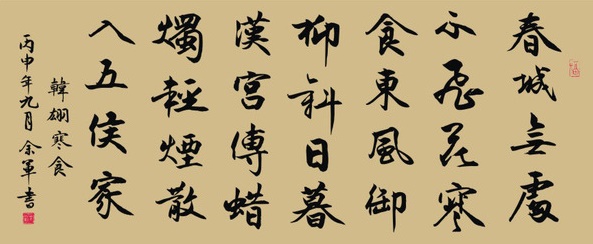 春城無處
不飛花寒
食東風御
柳斜日暮
漢宮傳蜡
燭輕煙散
入五侯家
韓翃寒食
丙申年九月余軍書